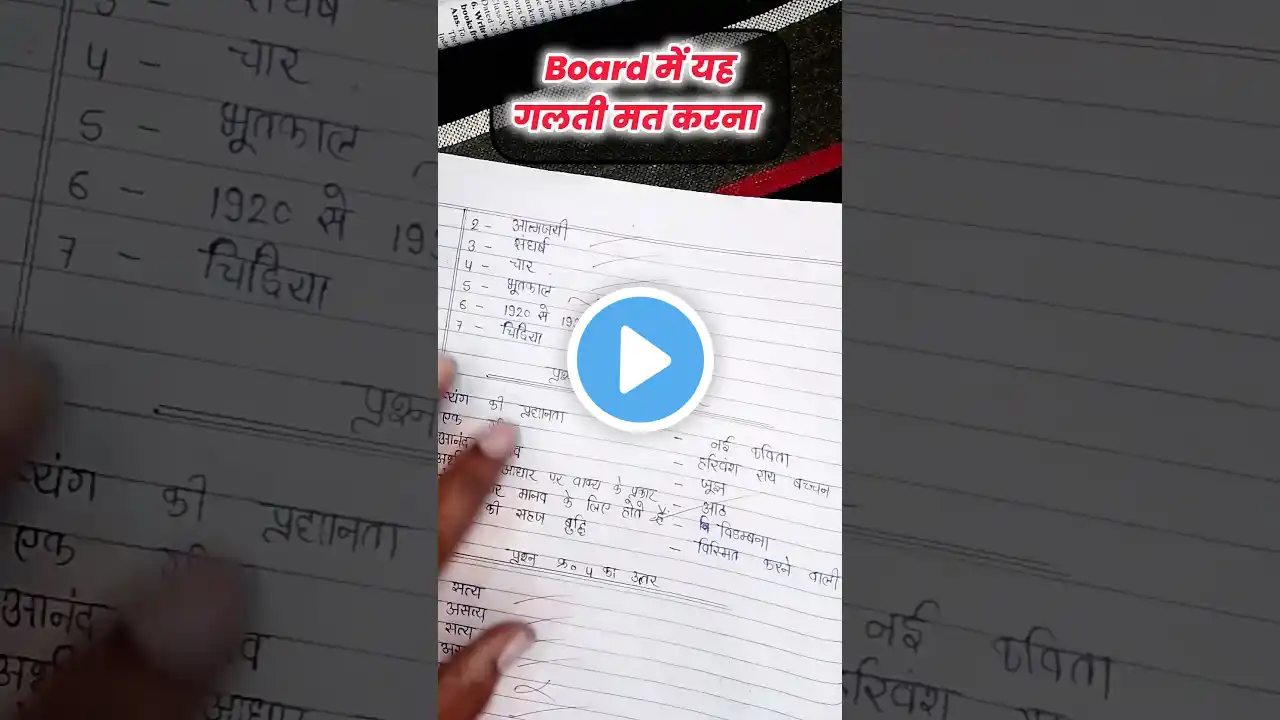 6. Writ
Ans.
books fr
Board में यह
गलती मत करना
2 - आत्मजयी
3 - संघर्ष
4 - चार
5 - भूतकाल
6 - 1920 से 19
7 - चिडिया
प्रश्न
व्यंग की प्रधानता - नई कविता
एक - हरिवंश राय बच्चन
आनंद - जूझ
आधार पर वाक्य के प्रकार - आठ
मानव के लिए होते है - विडम्बना
की सहज बुद्धि - विस्मित करने वाली
प्रश्न क्र० 4 का उत्तर
सत्य
असत्य
सत्य